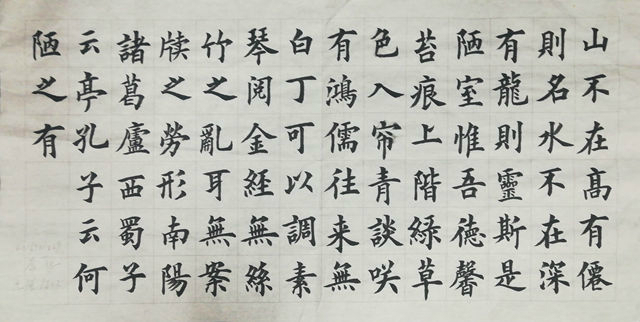 山不在高有僊
則名水不在深
有龍則靈斯是
陋室惟吾德馨
苔痕上階綠草
色入帘青談咲
有鴻儒往来無
白丁可以調素
琴阅金經無絲
竹之亂耳無案
牍之勞形南陽
諸葛廬西蜀子
云亭孔子云何
陋之有